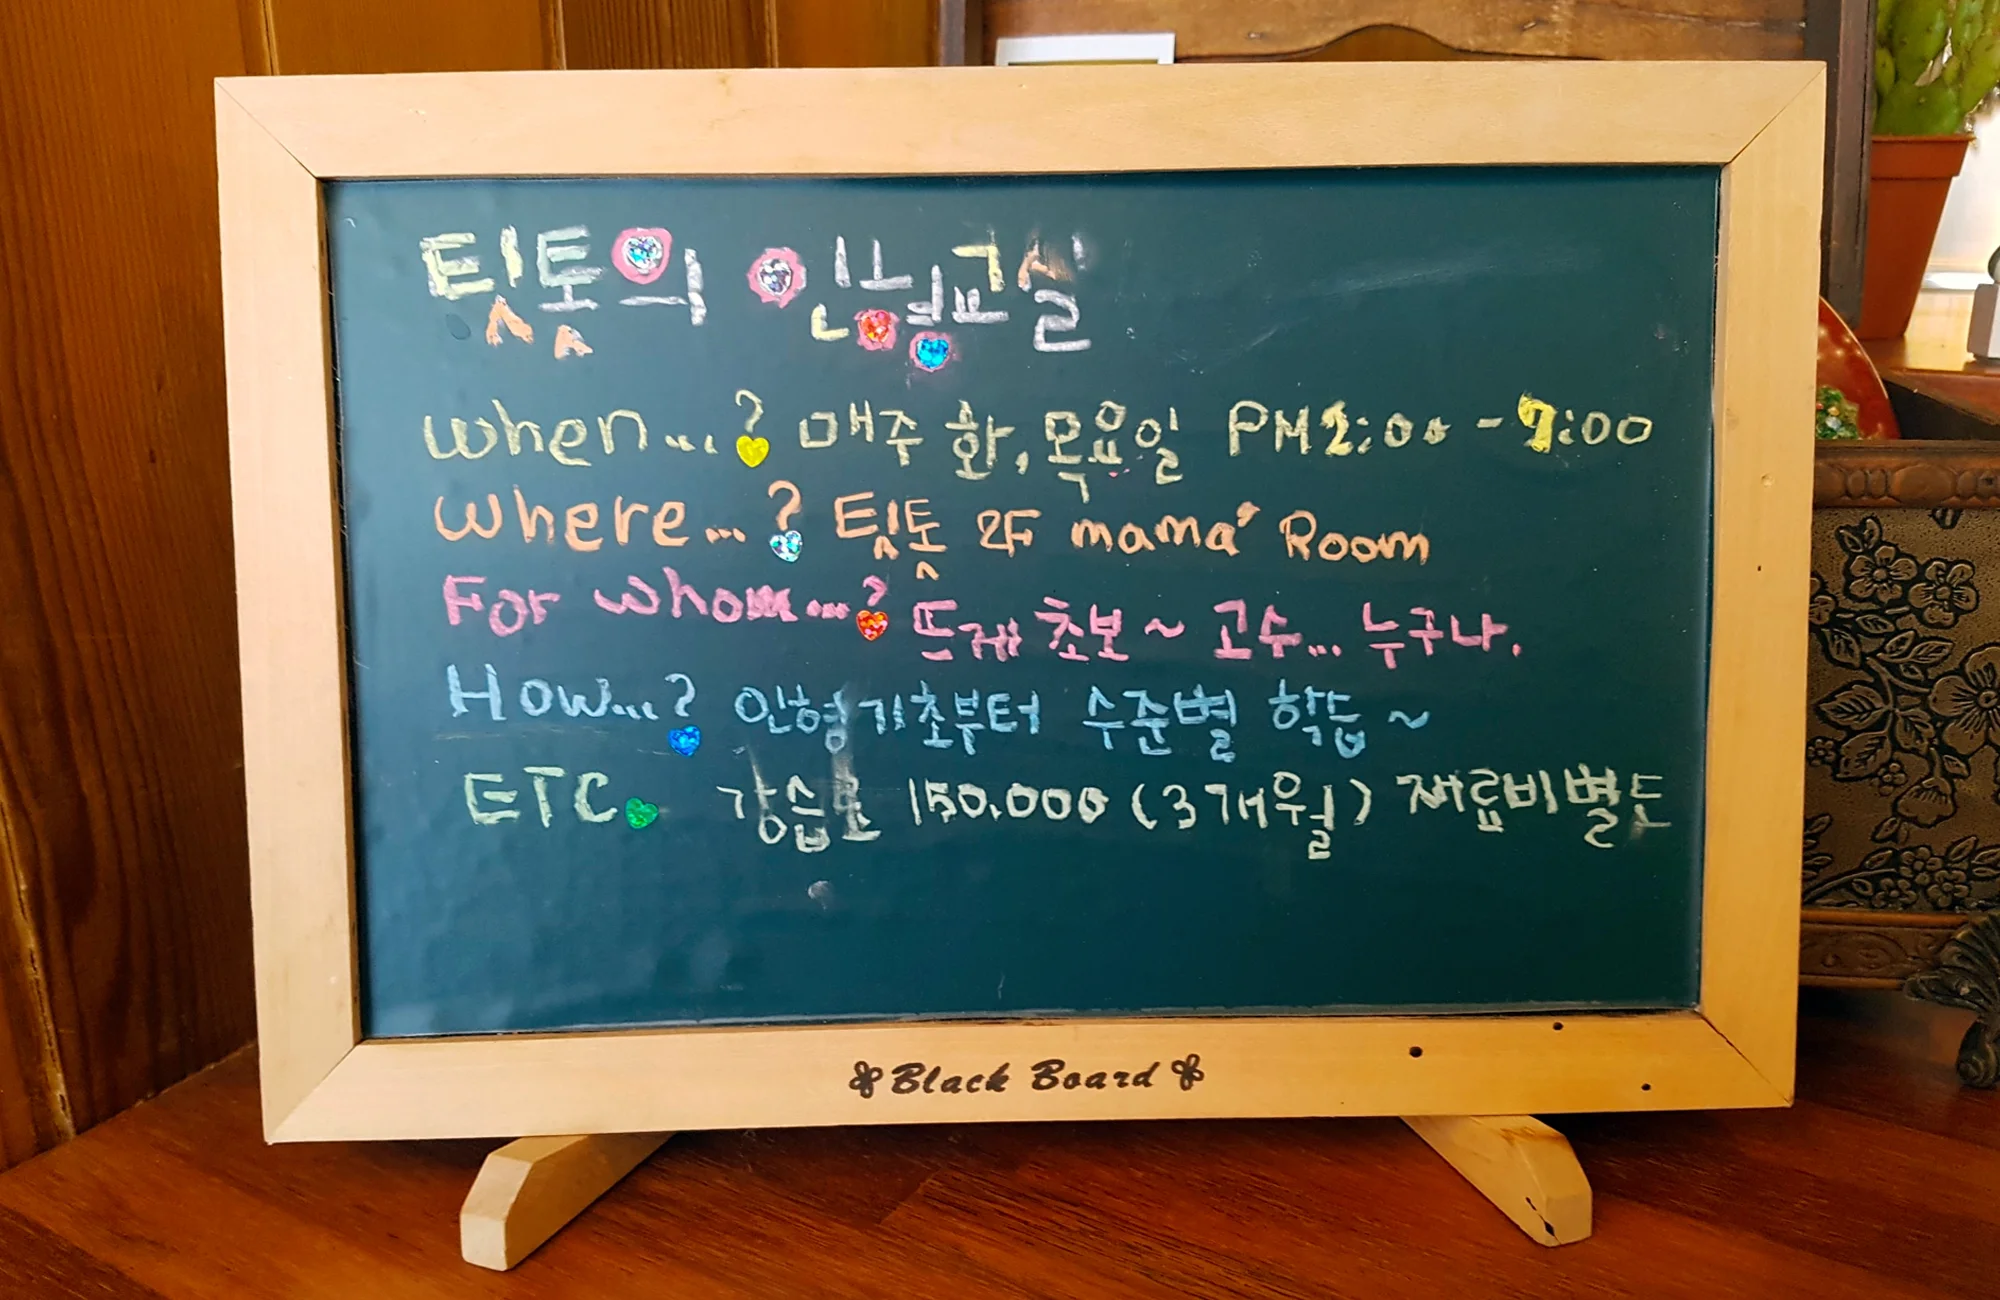 팀톰의 인형교실
When...? 매주 화,목요일 PM 2:00 - 7:00
Where...? 팀톰 2F mama' Room
For whom...? 뜨게 초보~ 고수... 누구나.
How...? 인형기초부터 수준별 학습~
ETC. 강습료 150.000 (3개월) 재료비별도
Black Board